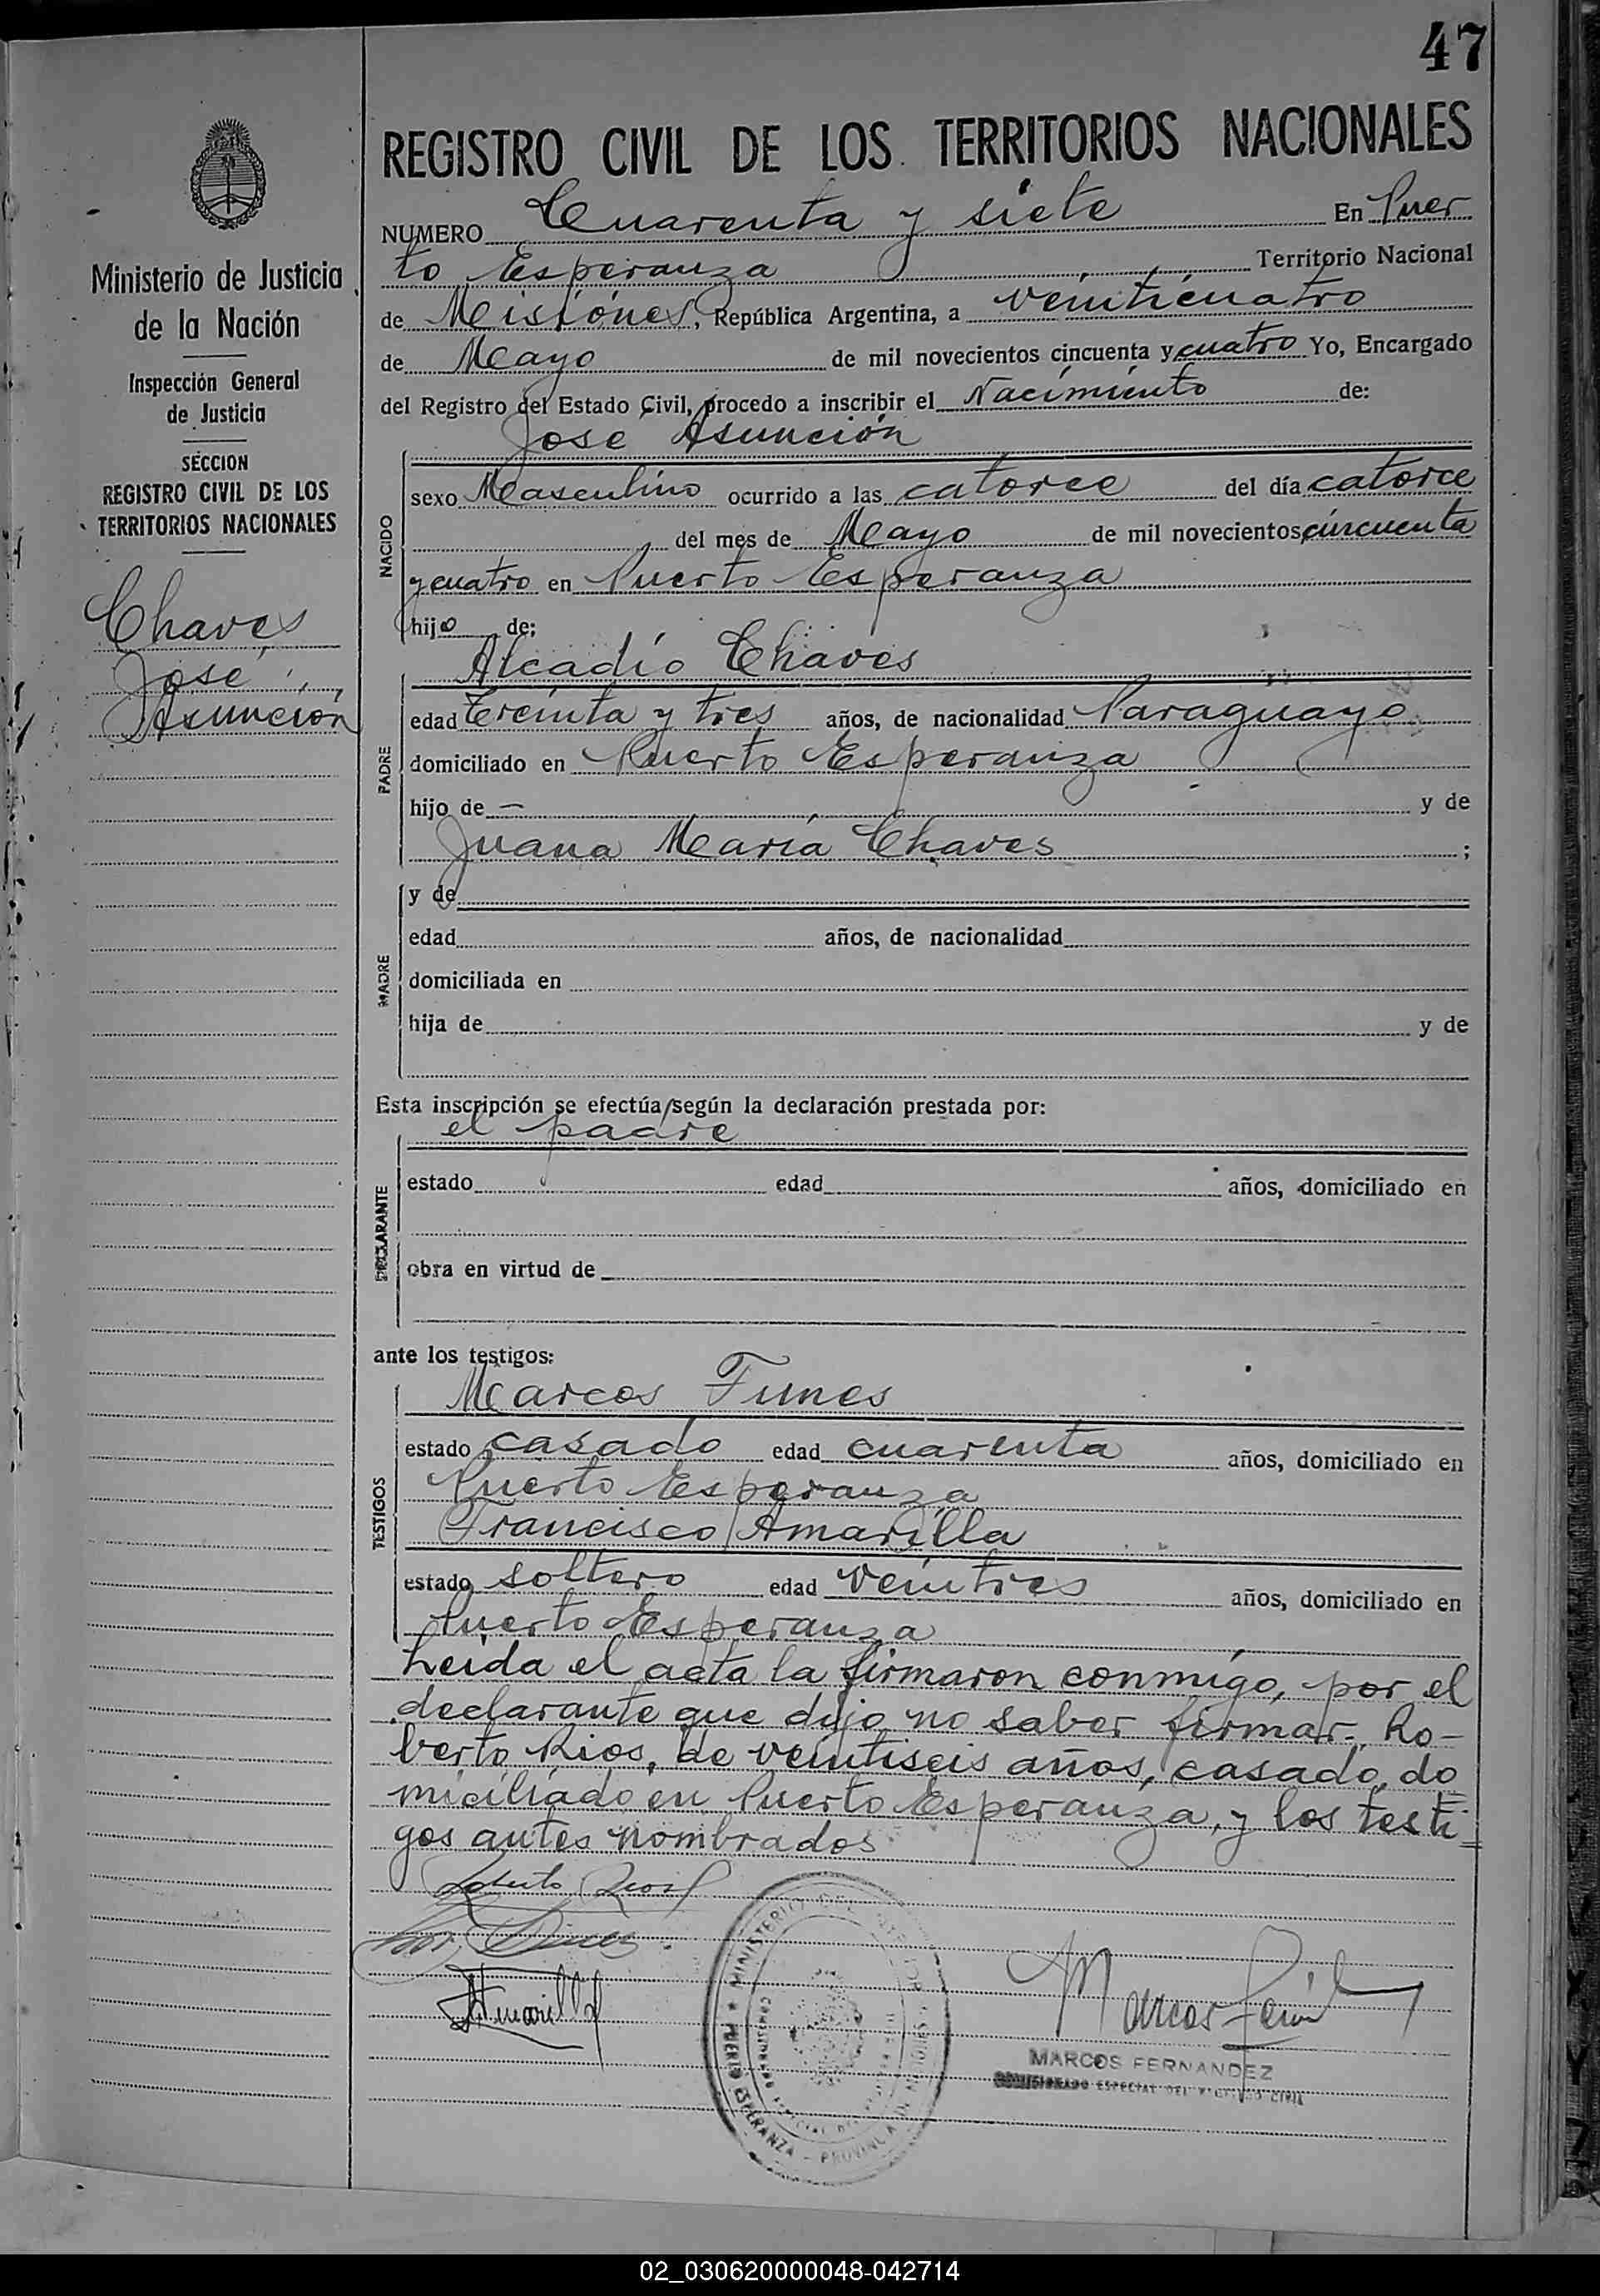 47
REGISTRO CIVIL DE LOS TERRITORIOS NACIONALES
NUMERO Cuarenta y siete En Puer
to Esperanza Territorio Nacional
de Misiónes, República Argentina, a veinticuatro
de Mayo de mil novecientos cincuenta y cuatro Yo, Encargado
del Registro del Estado Civil, procedo a inscribir el Nacimiento de:
José Asunción
NACIDO
sexo Masculino ocurrido a las catorce del día catorce
del mes de Mayo de mil novecientos cincuenta
y cuatro en Puerto Esperanza
hijo de:
Alcadio Chaves
PADRE
edad Treinta y tres años, de nacionalidad Paraguayo
domiciliado en Puerto Esperanza
hijo de — y de
Juana María Chaves ;
MADRE
y de
edad años, de nacionalidad
domiciliada en
hija de y de
Esta inscripción se efectúa según la declaración prestada por:
el padre
DECLARANTE
estado edad años, domiciliado en
obra en virtud de
ante los testigos:
TESTIGOS
Marcos Funes
estado casado edad cuarenta años, domiciliado en
Puerto Esperanza
Francisco Amarilla
estado soltero edad veintres años, domiciliado en
Puerto Esperanza
Leida el acta la firmaron conmigo, por el
declarante que dijo no saber firmar. Ro-
berto Rios, de veintiseis años, casado, do
miciliado en Puerto Esperanza, y los testi=
gos antes nombrados
Roberto Rios
Amarilla
MINISTERIO DEL
PUERTO ESPERANZA - PROVINCIA DE MISIONES
Marcos
MARCOS FERNANDEZ
COMISIONADO ESPECIAL DEL REGISTRO CIVIL
Ministerio de Justicia
de la Nación
Inspección General
de Justicia
SECCION
REGISTRO CIVIL DE LOS
TERRITORIOS NACIONALES
Chaves
José
Asunción
02_030620000048-042714